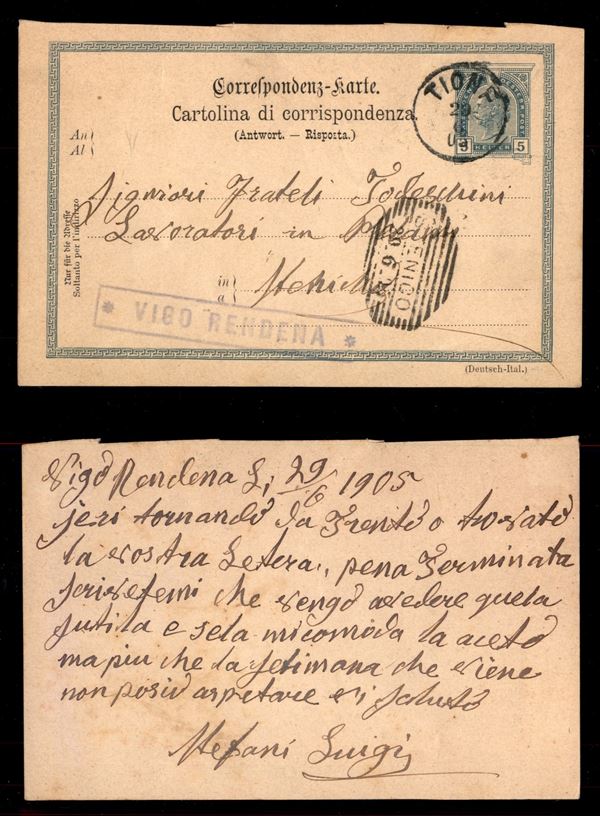 Correspondenz-Karte.
Cartolina di corrispondenza.
(Antwort. — Risposta.)
TIONE
29
5 HELLER 5
An
Al
Signiori Frateli Todeschini
Lavoratori in
Nur für die Adresse
Soltanto per l'indirizzo
in
a
ENICO
6
* VIGO RENDENA *
(Deutsch-Ital.)
Vigo Rendena Li 29/6 1905
jeri tornando da Trento o trovato
la vostra Letera, pena Terminata
scrivetemi che vengo avedere quela
sutila e sela micomoda la aceto
ma piu che la setimana che viene
non posio aspetare vi saluto
Stefani Luigi